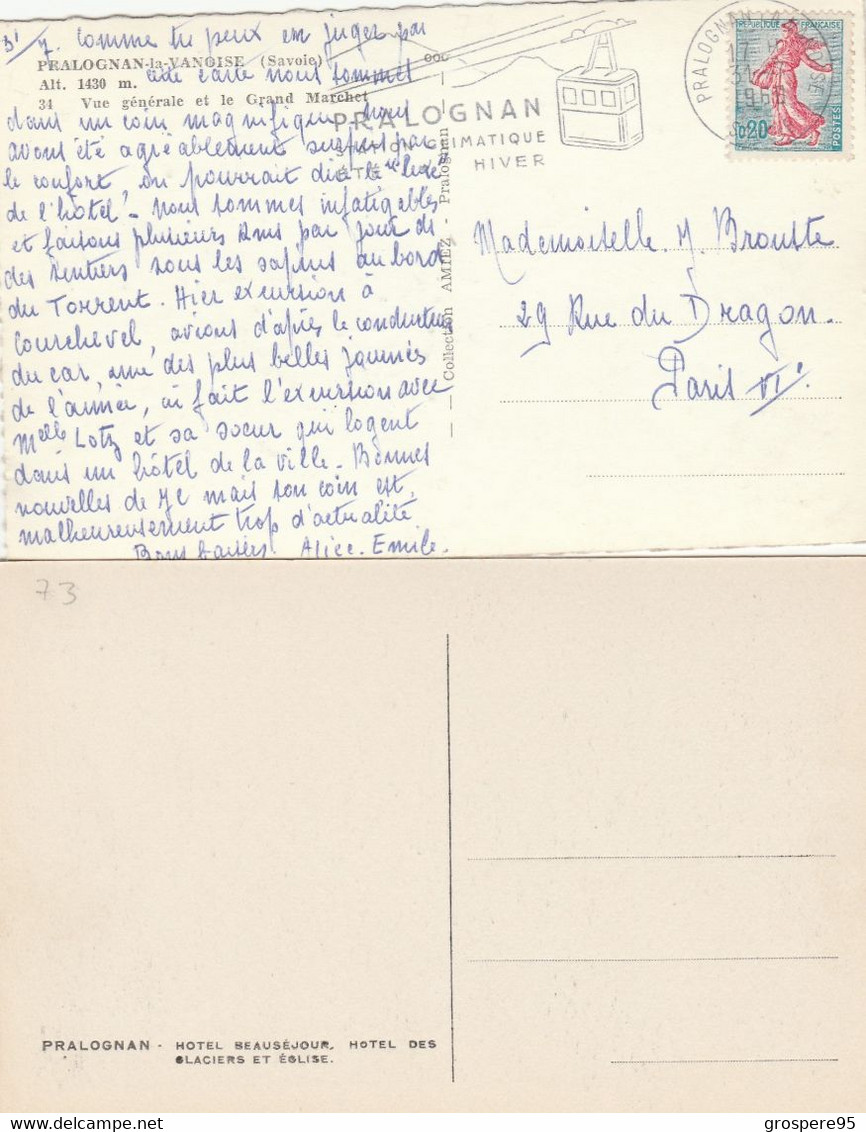 31/7. Comme tu peux en juger par
PRALOGNAN-la-VANOISE (Savoie)
cette carte nous sommes
Alt. 1430 m.
34 Vue générale et le Grand Marchet
dans un coin magnifique, nous
avons été agréablement surpris par
le confort, on pourrait dire le "luxe"
de l'hôtel. Nous sommes infatigables
et faisons plusieurs kms par jour ds
des sentiers sous les sapins au bord
du Torrent. Hier excursion à
Courchevel, avions d'après le conducteur
du car, une des plus belles journées
de l'année, ai fait l'excursion avec
Melle Lotz et sa soeur qui logent
dans un hôtel de la ville. Bonnes
nouvelles de JC mais son coin est,
malheureusement trop d'actualité
Bons baisers Alice. Emile.
Collection AMIEZ - Pralognan
PRALOGNAN
STATION CLIMATIQUE
ÉTÉ HIVER
PRALOGNAN
17 H
31
RÉPUBLIQUE FRANÇAISE
0,20
POSTES
Mademoiselle. J. Brouste
29 Rue du Dragon.
Paris VIe
73
PRALOGNAN - HOTEL BEAUSÉJOUR, HOTEL DES
GLACIERS ET ÉGLISE.
grospere95